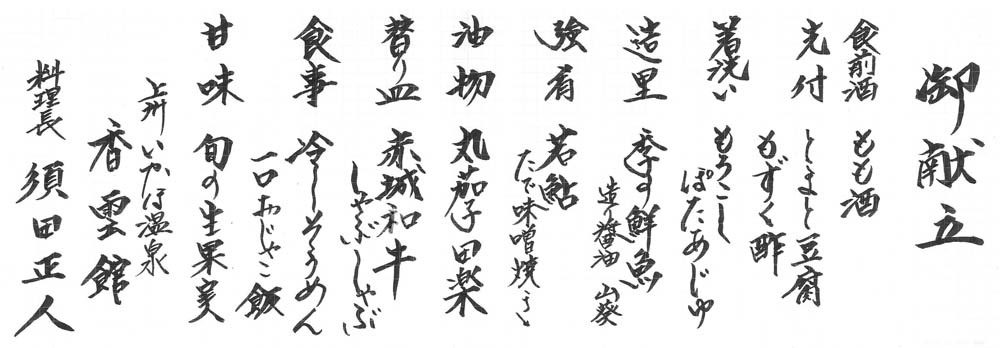 御献立
食前酒 もも酒
先付 とまと豆腐
もずく酢
箸洗い もろこし
ぽたあじゅ
造里 季の鮮魚
造り醤油 山葵
強肴 若鮎
たで味噌焼き
油物 丸茄子田楽
替り皿 赤城和牛
しゃぶしゃぶ
食事 冷しそうめん
一口おじゃこ飯
甘味 旬の生果実
上州いかほ温泉
香雲館
料理長 須田正人